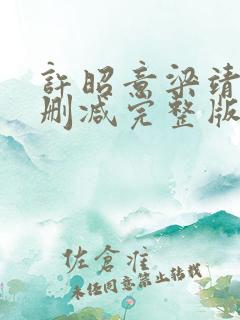 許昭意梁靖
删减完整版
佐倉淮
未经同意禁止转载